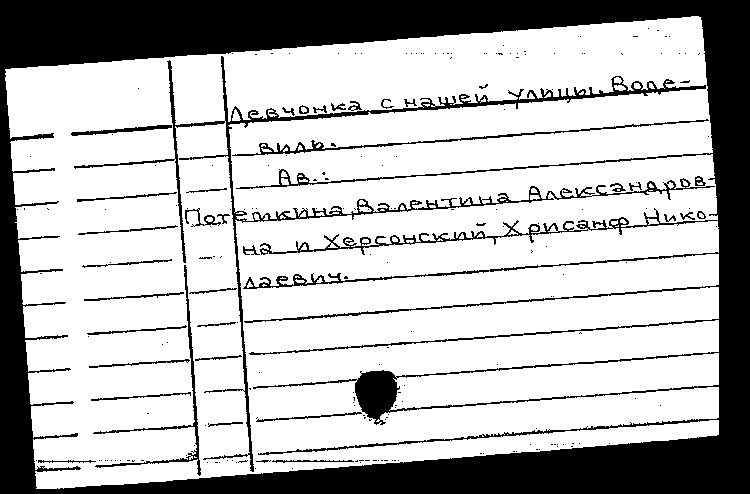 Девчонка с нашей улицы. Воде-
виль.
Ав.:
Потемкина, Валентина Александров-
на и Херсонский, Хрисанф Нико-
лаевич.